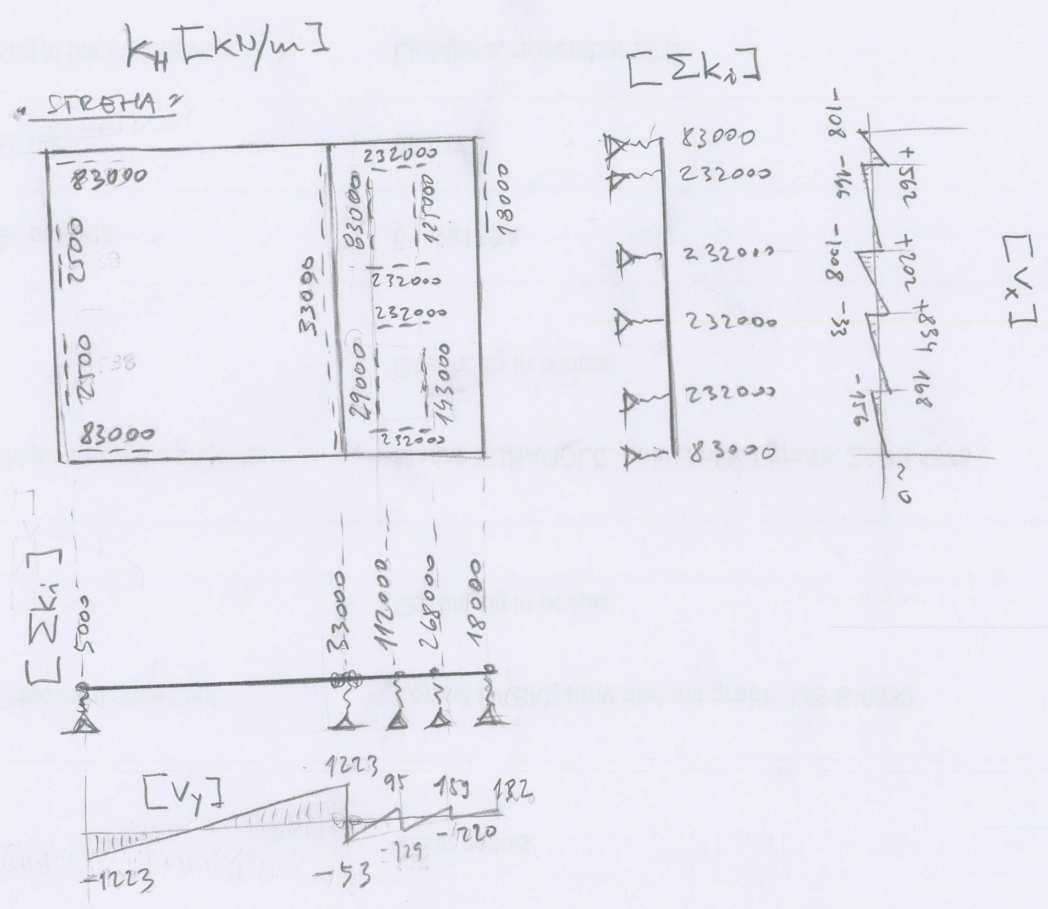 k_H [kN/m]
"STREHA"
[Σki]
83000
2500
2500
83000
33000
232000
83000
125000
18000
232000
232000
29000
143000
232000
83000
232000
232000
232000
232000
83000
-108
+562
-166
+202
-1008
+834
-55
168
-156
~0
[Vx]
[Σki]
5000
33000
112000
268000
18000
[Vy]
1223
95
159
182
-1223
-53
-129
-1220